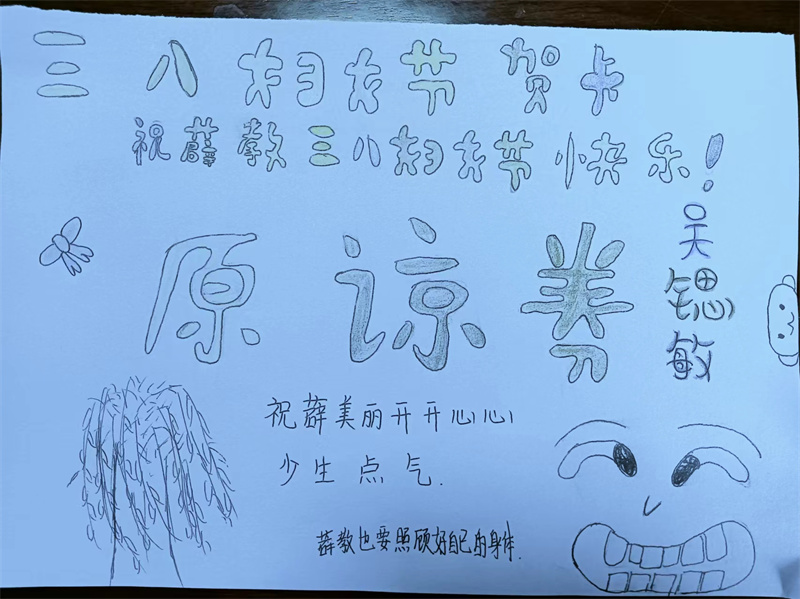 三八妇女节贺卡
祝薛教三八妇女节快乐!
原谅券
吴锶敏
祝薛美丽开开心心
少生点气.
薛教也要照顾好自己的身体.